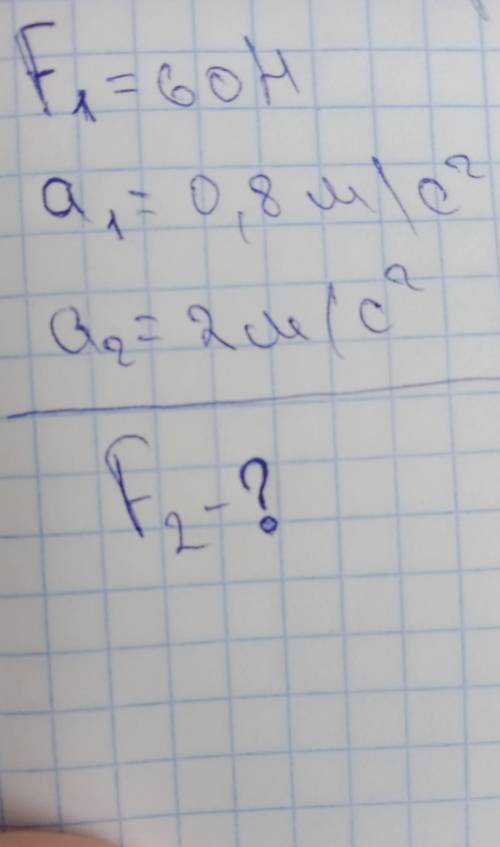 F₁ = 60 Н
a₁ = 0,8 м/с²
a₂ = 2 м/с²
F₂ - ?